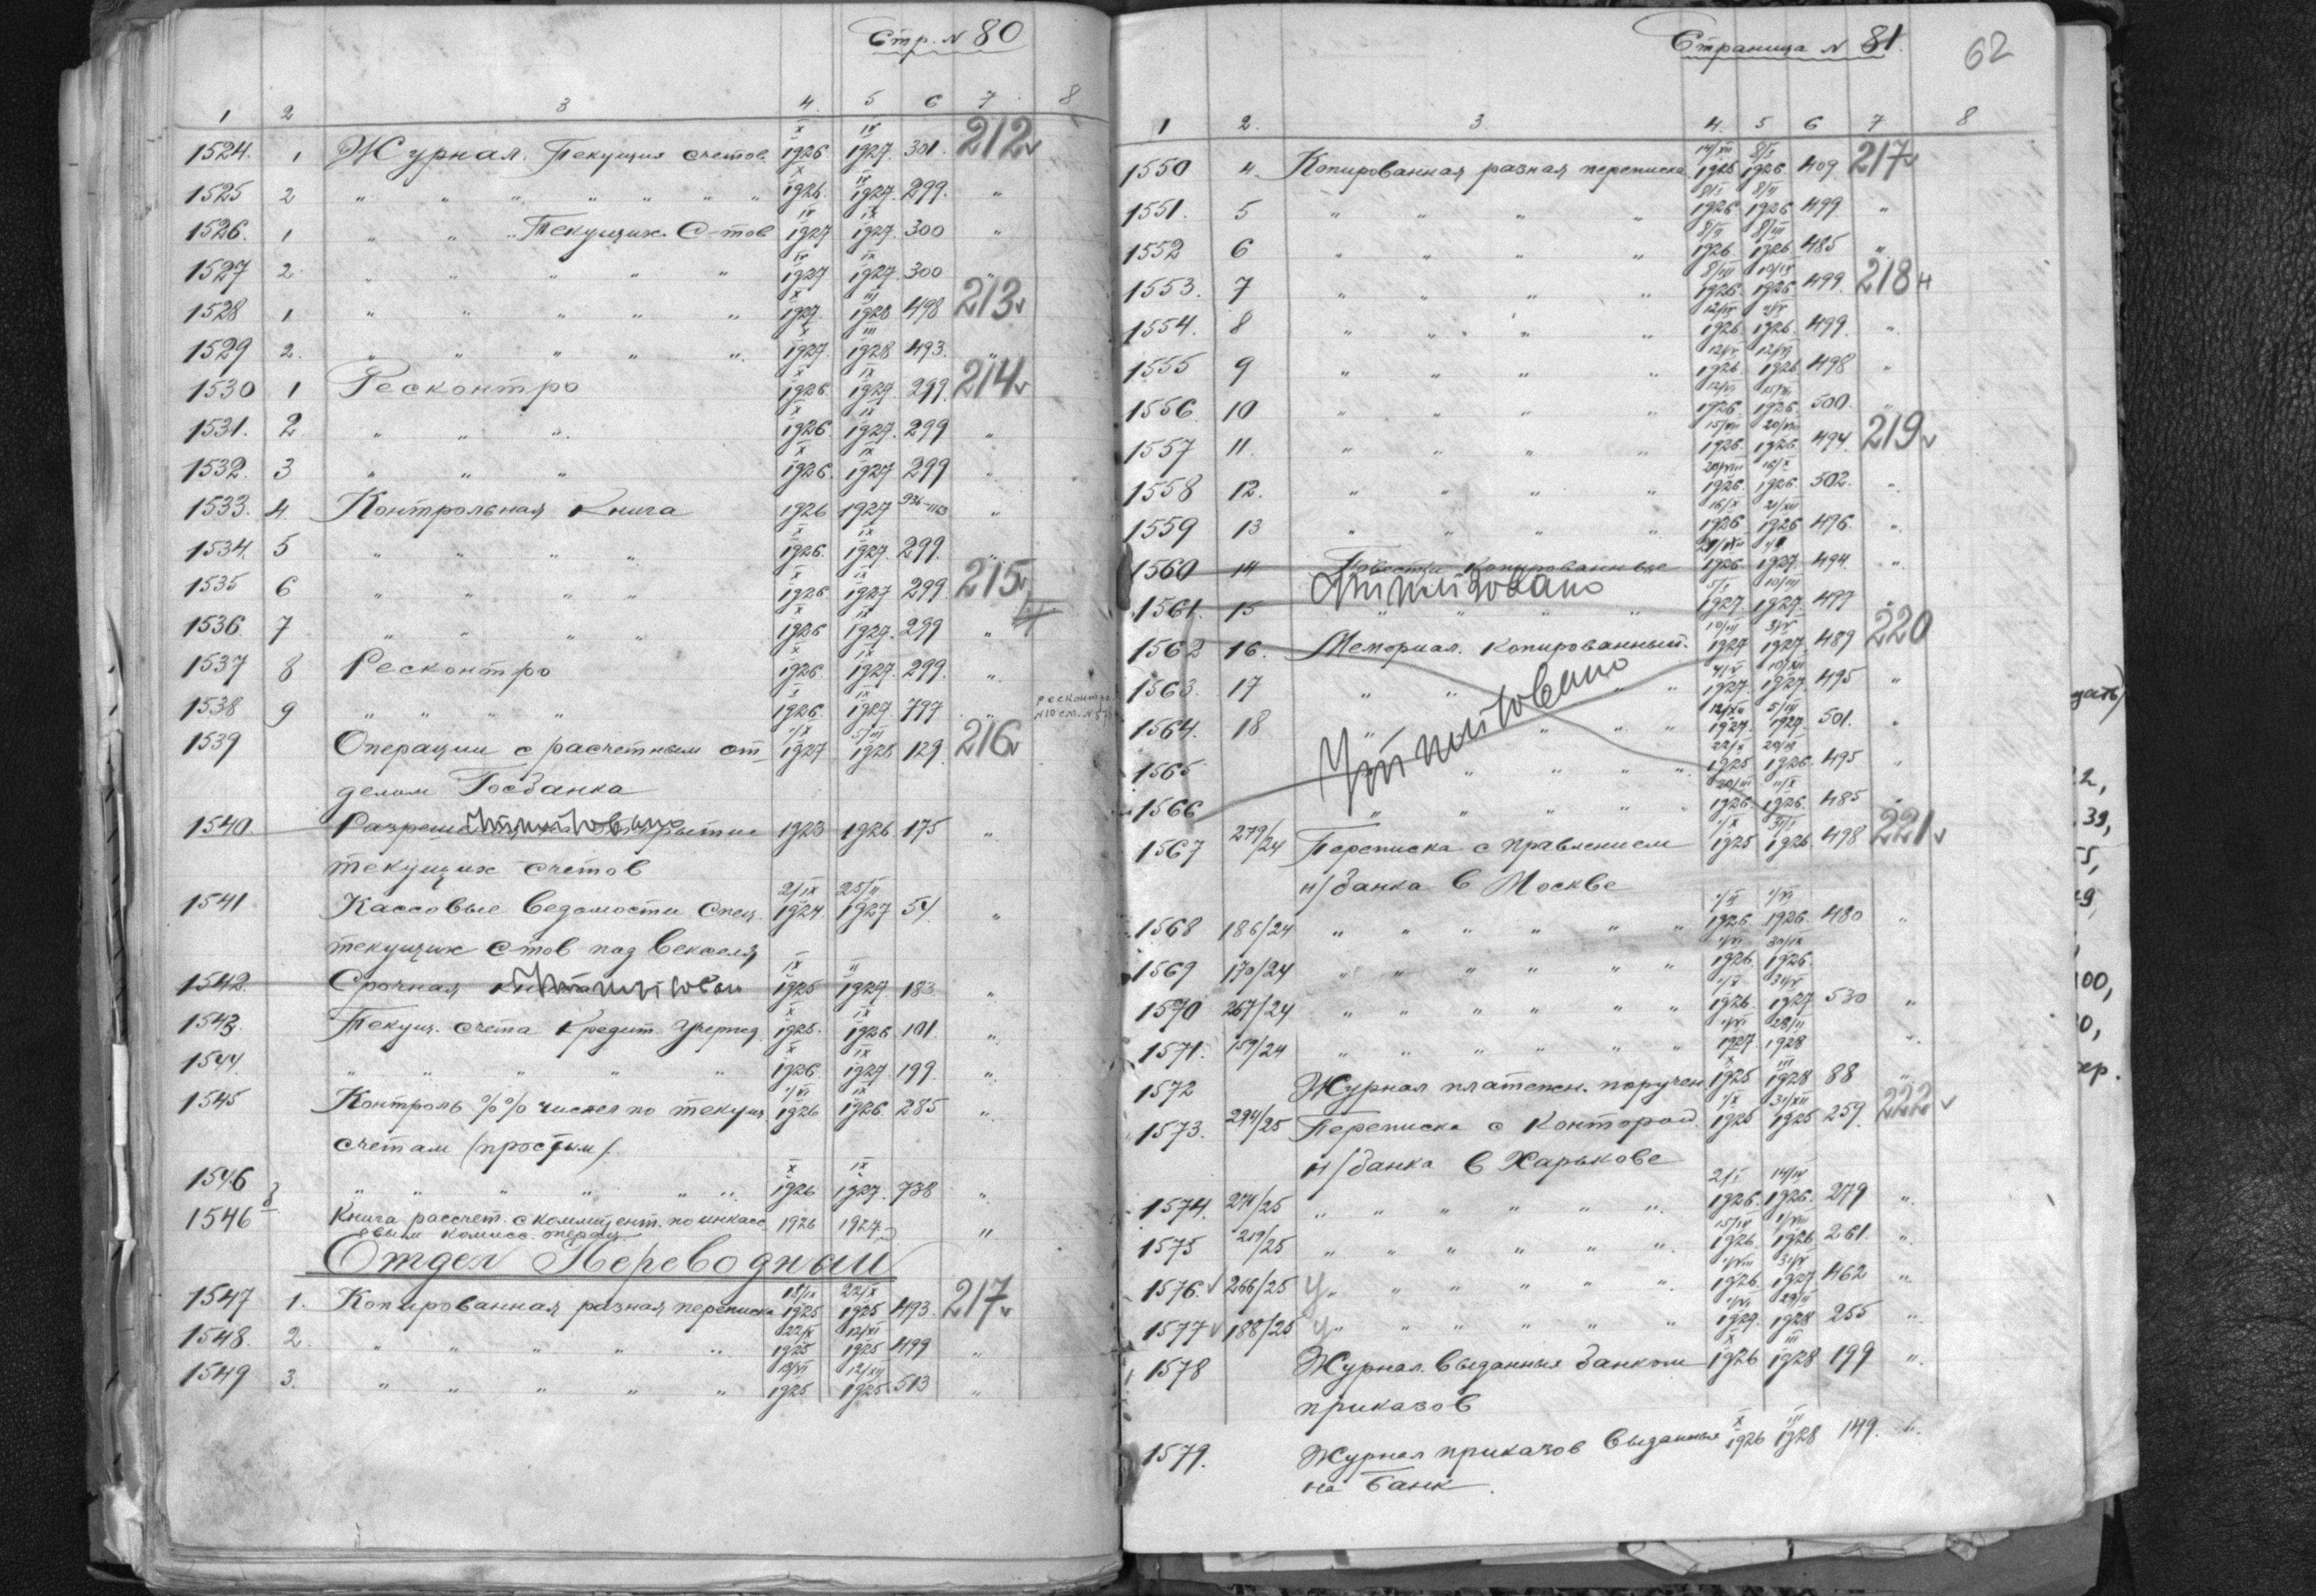 Стр. № 80
1 2 3 4. 5 6 7 8
1524. 1 Журнал. Текущих счетов X 1926. IV 1927. 301. 212 v
1525 2 " " " " " " " X 1926. IV 1927. 299. "
1526. 1 " " " Текущих. С-тов IV 1927 IX 1927. 300 "
1527 2 " " " " " IV 1927 IX 1927. 300 "
1528 1 " " " " " X 1927. III 1928 498 213 v
1529 2. " " " " " X 1927. III 1928 493. "
1530 1 Ресконтро X 1926. IX 1927. 299. 214 v
1531. 2 " " " X 1926. IX 1927. 299 "
1532. 3 " " " X 1926. IX 1927 299 "
1533. 4. Контрольная Книга 1926 1927 "
1534. 5 " " " " X 1926. IX 1927. 299. "
1535 6 " " " " X 1926. IX 1927 299 215 v
1536. 7 " " " " X 1926 IX 1927. 299 "
1537 8 Ресконтро X 1926. IX 1927. 299. "
1538 9 " " " " X 1926. IX 1927. 797 " Ресконтро
1539 Операции с расчетным от 1/X 1927 5/III 1928 129. 216 v
делом Госбанка
1540. 1923 1926 175 "
текущих счетов
1541 Кассовые ведомости Спец. 2/IX 1924. 25/II 1927 54. "
текущих с-тов под векселя
1542. Срочная IX 1925 II 1927. 183. "
1543. Текущ. счета Кредит. Учрежд. X 1925. IX 1926 101. "
1544. " " " " " X 1926 IX 1927 199. "
1545 Контроль %% чисел по текущ. 1/VI 1926 IX 1926 285 "
счетам (простым).
1546 " " " " " " X 1926 IX 1927. 738 "
1546 б Книга рассчет. с коммитент. по инкассо 1926 1927. "
овым комисс. операц.
Отдел Переводный
1547 1. Копированная разная переписка 18/IX 1925 22/X 1925 493. 217 v
1548. 2. " " " " " 22/X 1925 12/XI 1925 499 "
1549 3. " " " " " 13/XI 1925 12/XII 1925 513 "
Страница № 81.
62
1 2. 3. 4. 5 6 7 8
1550 4. Копированная разная переписка. 14/XII 1925 8/I 1926. 409. 217 v
1551. 5 " " " " 8/I 1926. 8/II 1926 499. "
1552 6 " " " " 8/II 1926. 8/III 1926 485 "
1553. 7 " " " " 8/III 1926. 10/IV 1926. 499. 218 н
1554. 8 " " " " 12/IV 1926. 1926. 499. "
1555 9 " " " " 12/V 1926. 12/VI 1926. 498 "
1556. 10 " " " " 12/VI 1926. 1926. 500. "
1557 11. " " " " 15/VII 1926. 20/VIII 1926. 494. 219 v
1558 12. " " " " 20/VIII 1926. 16/X 1926. 502. "
1559 13 " " " " 16/X 1926 21/XII 1926 496. "
1560 14 копированные 1926 1927. 494. "
Утилизовано
1561. 15 " " " " 5/I 1927. 10/III 1927. 497 "
1562 16. Мемориал. копированный. 10/III 1927 3/V 1927 489 220
1563. 17 " " " " 4/V 1927. 10/XII 1927. 495 "
Утилизовано
1564. 18 " " " " 12/XII 1927. 5/III 1927. 501. "
1565 " " " " 22/X 1925 20/III 1926. 495 "
1566 " " " " " 20/III 1926. 1926. 485 "
1567 279/24 Переписка с правлением 1/X 1925 31/I 1926 498 221 v
н/банка в Москве
1568 186/24 " " " " " " 1926. 1/VI 1926. 480 "
1569 170/24 " " " " " " 1/VI 1926. 30/IX 1926.
1570 267/24 " " " " " " 1/X 1926. 31/V 1927 530 "
1571. 159/24 " " " " " " 1/VI 1927. 28/II 1928 "
1572 Журнал платежн. поручен X 1925 III 1928 88 "
1573. 294/25 Переписка с Конторой. 1/X 1925 31/XII 1925 259. 222 v
н/банка в Харькове
1574. 274/25 " " " " " " 2/I 1926. 14/IV 1926. 279 "
1575 219/25 " " " " " " 15/IV 1926. 1/VIII 1926 261. "
1576. v 266/25 У " " " " " " 1/VIII 1926. 31/V 1927 462 "
1577 v 188/25 У " " " " " " 1/VI 1927. 29/II 1928 255 "
1578 Журнал. выданных банком X 1926 III 1928 199 "
приказов
1579. Журнал приказов выданных X 1926 III 1928 149. "
на Банк.